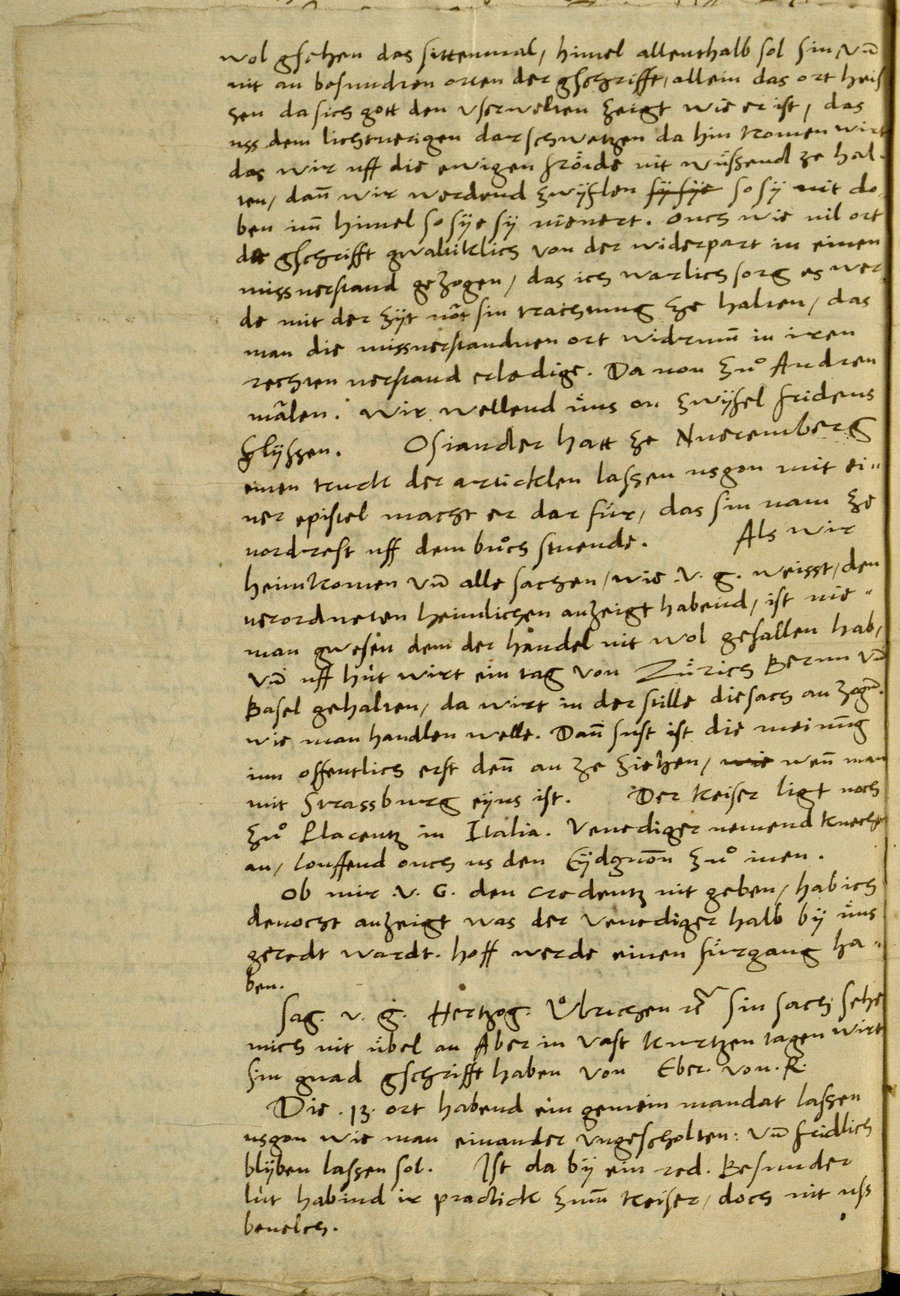 wol gsehen das sittenmal, himel allenthalb sol sin, vn̄
nit an besundren orten der gschrifft, allein das ort heis
sen da sich gott den vserwelten zeigt wie er ist, das
uss dem lichtuerigen dar schwetzen da hin komen wirt
das wir uff die ewigen fröide nit wüssend ze hal-
ten, dan̄ wir werdend zwyflen so sy nit do
ben im̄ himel so sye sy nienert. Ouch wie vil ort
der gschrifft gwaltiklich von der widerpart in einen
missuerstand gezogen, das ich warlich sorg es wer
de mit der zyt not sin trachtung ze halten, das
man die missuerstandnen ort widrum̄ in iren
rechten verstand erledige. Da von zů Andren
mälen. Wir wellend üns on zwyfel fridens
flyssen. Osiander hatt ze Nueremberg
einen truck der articklen lassen usgon mit ei-
ner epistel macht er dar für, das sin nam ze
vordrest uff dem bůch stuende. Als wir
heimkomen vn̄ alle sachen, wie .v. g. weisst, den
verordneten heimlichen anzeigt habend, ist nie-
man gwesen dem der handel nit wol gefallen hab,
vn̄ uff hüt wirt ein tag von Zürich Bernn vn̄
Basel gehalten, da wirt in der stille die sach an zogē.
wie man handlen welle. Dan̄ sust ist die meinūg
inn offentlich erst den̄ an ze ziehen, wie wen̄ man
mit Strassburg eyns ist. Der keiser ligt noch
zů Placentz in Italia. Venediger nemend knecht
an, louffend ouch us den Eydgnon̄ zů inen.
Ob mir .v. G. den credentz nit geben, hab ich
dennocht anzeigt was der Venediger halb by üns
geredt wardt. hoff werde einen fürgang ha-
ben.
Sag. v. g. Hertzog. Ůlrichen sin sach sehe
mich nit übel an Aber in vast kurtzen tagen wirt
sin gnad gschrifft haben von Eber. von. R.
Die .13. ort habend ein gemein mandat lassen
usgon wie man einander vngescholten: vn̄ fridlich
blyben lassen sol. Ist da by ein red. Besunder
lüt habind ir practick zum̄ keiser, doch nit uss
beuelch.